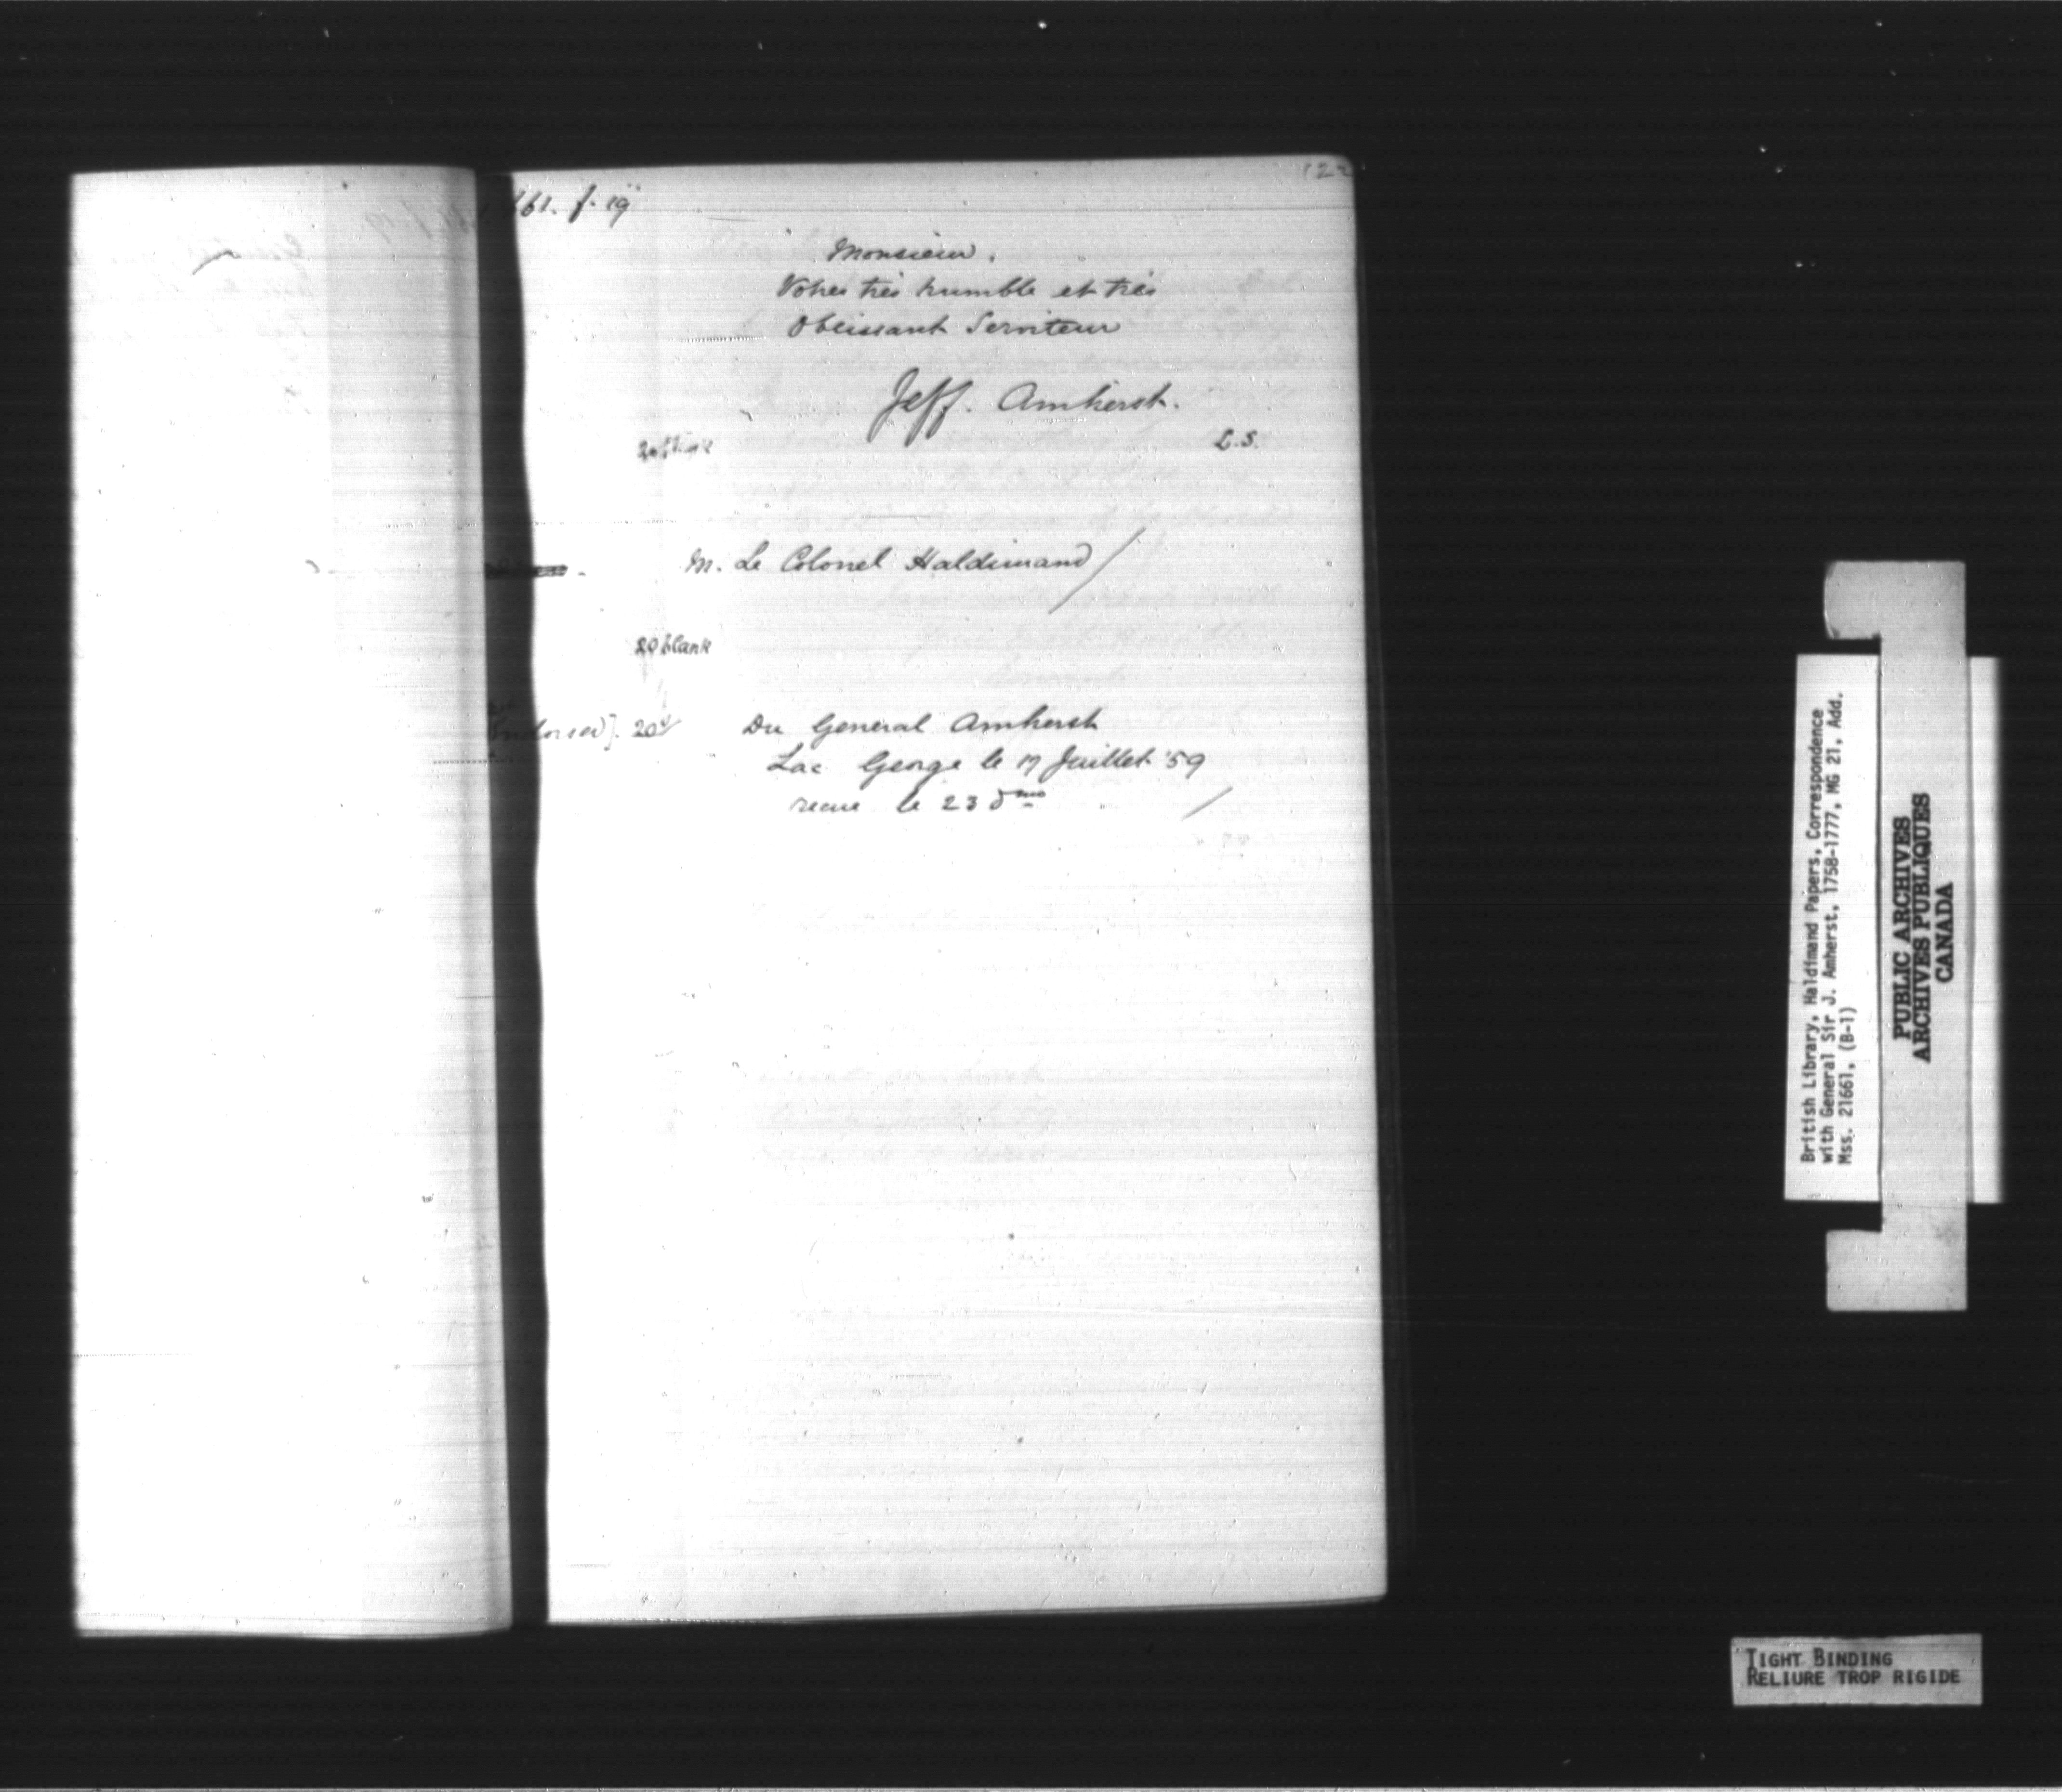 661. f. 19
122
Monsieur.
Votres très humble et très
Obeissant Serviteur
Jeff. Amherst.
L.S.
M. Le Colonel Haldimand
20 blank
Endorsed]. 20v
Du General Amherst
Lac George le 17 Juillet '59
recue le 23 dmo
British Library, Haldimand Papers, Correspondence
with General Sir J. Amherst, 1758-1777, MG 21, Add.
Mss. 21661, (B-1)
PUBLIC ARCHIVES
ARCHIVES PUBLIQUES
CANADA
TIGHT BINDING
RELIURE TROP RIGIDE